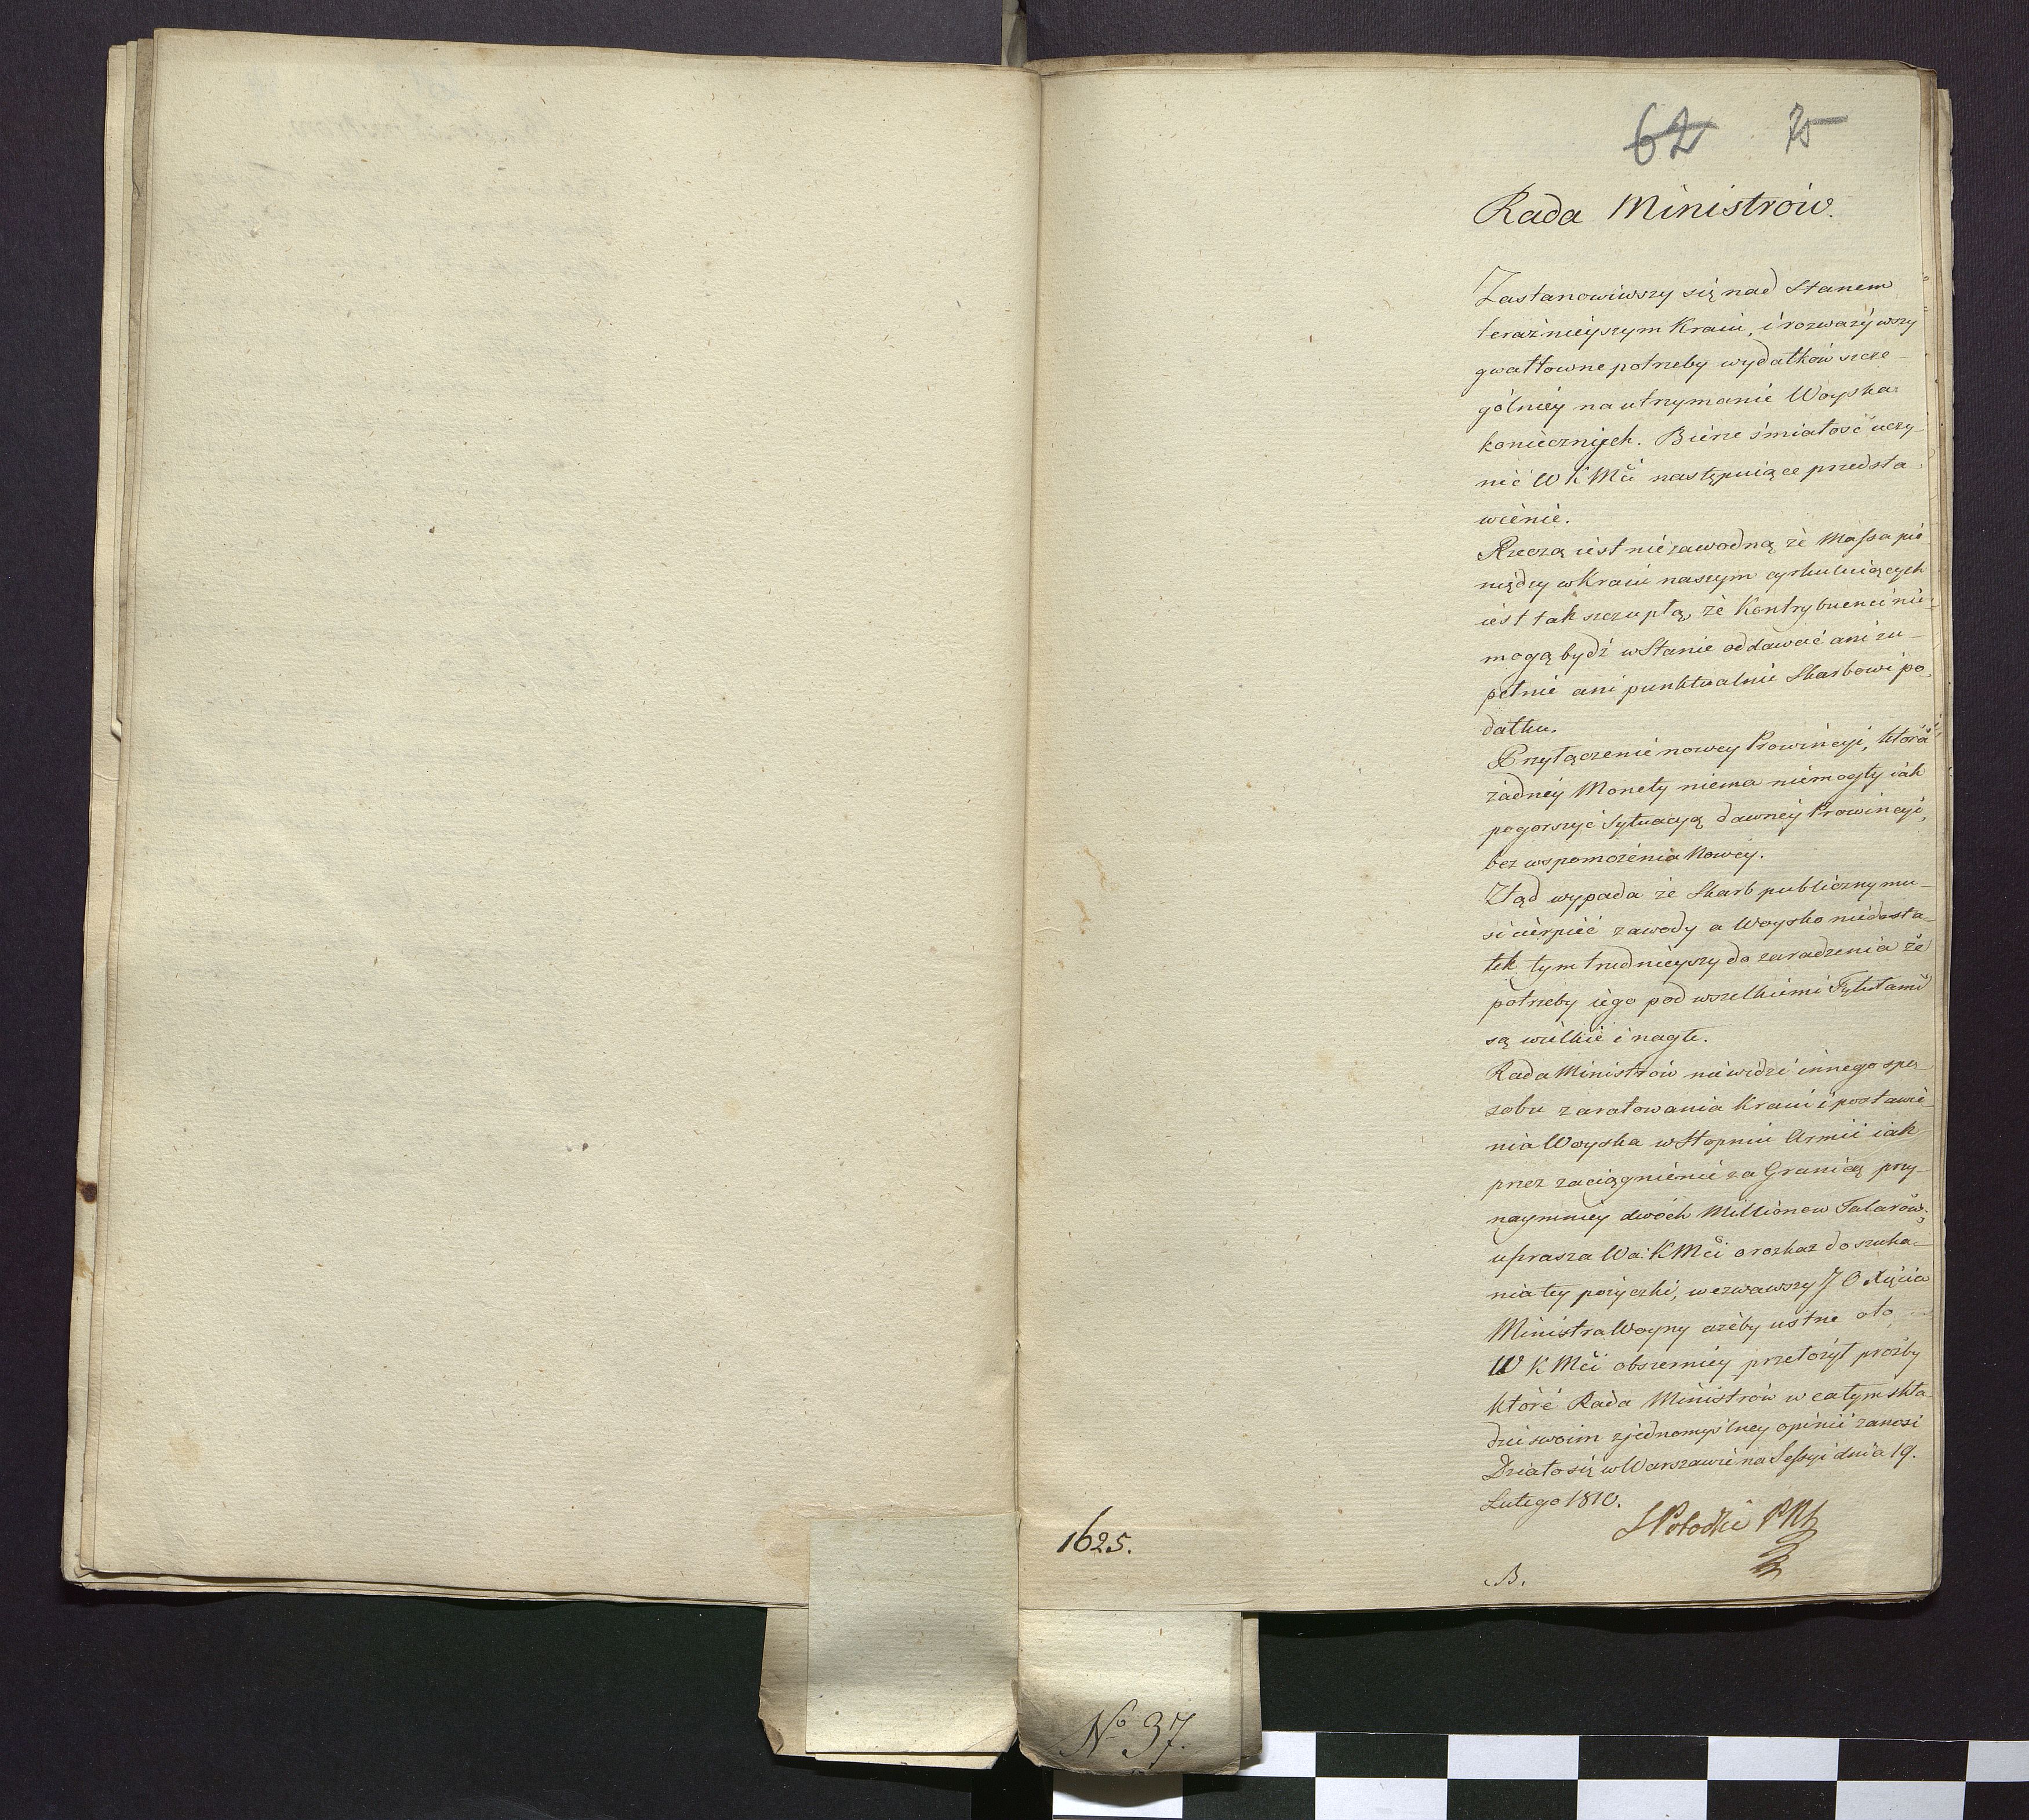 62 75
Rada Ministrów.
Zastanowiwszy się nad Stanem
teraznieyszym Kraiu, i rozważywszy
gwałtowne potrzeby wydatków szcze-
gólniey na utrzymanie Woyska
koniecznych. Bierze śmiałość uczy-
nić W K Mći następuiące przedsta-
wienie.
Rzeczą iest niezawodną że Massa pie-
niędzy w Kraiu naszym cyrkuluiących
iest tak szczupłą, że Kontrybuenci nie
mogą bydź w Stanie oddawać ani zu-
pełnie ani punktualnie Skarbowi po-
datku.
Przyłączenie nowey Prowincyi, która
żadney Monety niema niemogły iak
pogorszyć Sytuacyą dawney Prowincyi,
bez wspomożenia Nowey.
Ztąd wypada że Skarb publiczny mu-
si cierpieć zawody a Woysko niedosta-
tek tym trudnieyszy do zaradzenia że
potrzeby iego pod wszelkiemi Tytułami
są wielkie i nagłe.
Rada Ministrów niewidzi innego spo-
sobu zaratowania Kraiu i postawie-
nia Woyska w Stopniu Armii iak
przez zaciągnienie za Granicą przy-
naymniey dwóch Millionow Talarów.
uprasza Wa: K Mći o rozkaz do szuka-
nia tey pożyczki, wezwawszy J O Xięcia
Ministra Woyny ażeby ustne oto
W K Mći obszerniey przełożył prożby
które Rada Ministrów w całym skła-
dzie swoim z jednomyślney opinii zanosi
Działo się w Warszawie na Sessyi dnia 19.
Lutego 1810.
S Potocki PRM
B.
1625.
No 37.